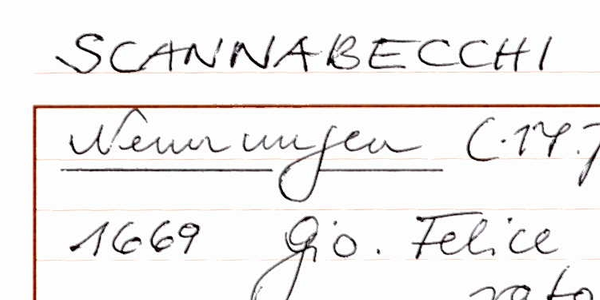 SCANNABECCHI
Nennungen (.17.
1669 Gio. Felice
rato